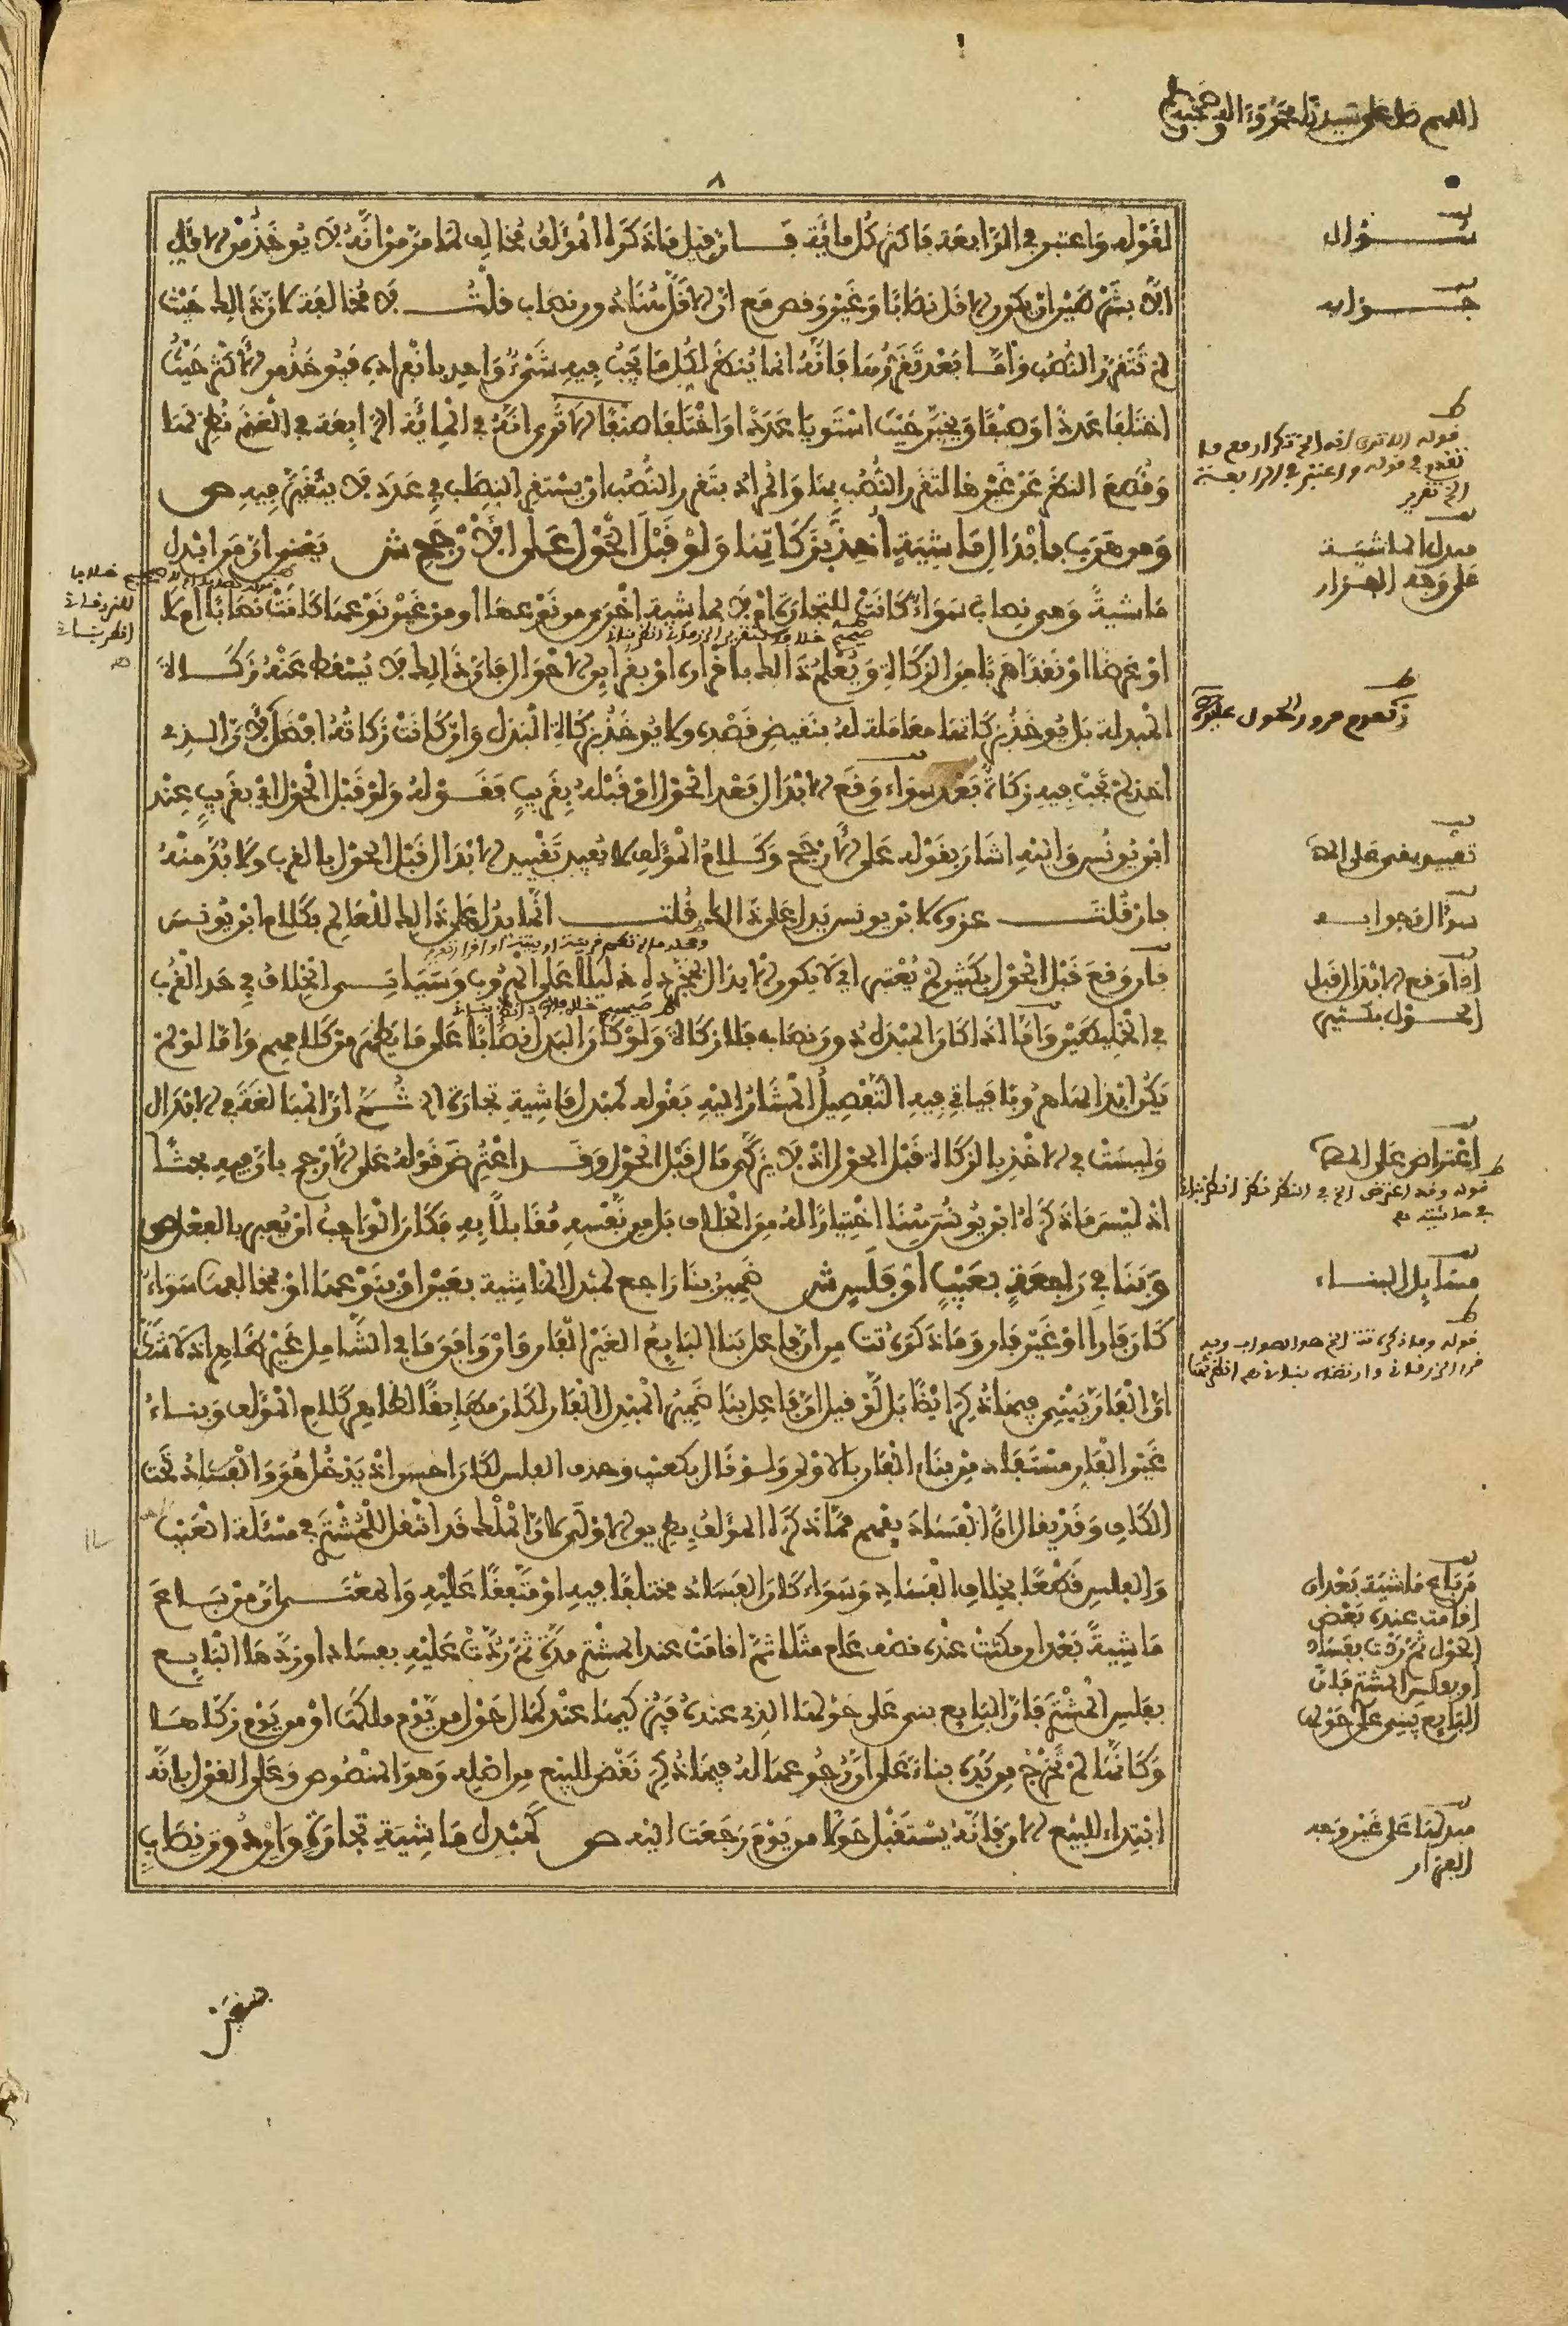 اللهم صل على سيدنا محمد وءاله وصحبه
٨
لقوله واعتبر في الرابعة فاكثر كل مائة فـان قيل ما ذكره المؤلف مخالف لما مر من انه لا يوخذ من الاقل
الا بشرطين ان يكون الاقل نصابا وغير وقص مع ان الاقل هنا دون نصاب قلت لا مخالفة لان ذلك حيث
لم تتقرر النصب واما بعد تقررها فانه انما ينظر لكل ما يجب فيه شيء واحد بانفراده فيوخذ من الاكثر حيث
اختلفا عددا او صنفا ويخير حيث استويا عددا او اختلفا صنفا الا ترى انه في المائة الرابعة في الغنم نظر لها
وقطع النظر عن غيرها لتقرر النصب بها والمراد بتقرر النصب ان يستقر النصاب في عدد لا يتغير فيه ص
ومن هرب بابدال ماشية اخذ بزكاتها ولو قبل الحول على الارجح ش يعني ان من ابدل
ماشية وهي نصاب سواء كانت للتجارة ام لا بماشية اخرى من نوعها او من غير نوعها كانت نصابا ام لا
او بعرض او نقد هربا من الزكاة ويعلم ذلك باقراره او بقراين الاحوال فان ذلك لا يسقط عنه زكـاة
المبدلة بل يوخذ بزكاتها معاملة له بنقيض قصده ولا يوخذ بزكاة البدل وان كانت زكاته افضل لان الذي
اخذ لم تجب فيه زكاة بعد سواء وقع الابدال بعد الحول او قبله بقريب فقـوله ولو قبل الحول اي بقريب عند
ابن يونس واليه اشار بقوله على الارجح وكـلام المؤلف لا يفيد تقييد الابدال قبل الحول بالقرب ولا بد منه
فان قلت عزوه لابن يونس يدل على ذلك قلت انما يدل على ذلك للعالم بكلام ابن يونس
فان وقع قبل الحول بكثير لم يعتبر اي لا يكون الابدال بمجرده دليلا على الهروب وسياتـي الخلاف في حد القرب
في الخليطين واما اذا كان المبدل دون نصاب فلا زكاة ولو كان البدل نصابا على ما يظهر من كلامهم واما لو لم
يكن ابدالها هروبا فياتي فيه التفصيل المشار اليه بقوله كمبدل ماشية تجارة الخ ثـم ان المبالغة في الابدال
وليست في الاخذ بالزكاة قبل الحول اذ لا يزكى مال قبل الحول وقـد اعترض قوله على الارجح بان فيه بحثا
اذ ليس ما ذكره ابن يونس هنا اختيارا له من الخلاف بل من نفسه مقابلا به فكان الواجب ان يعبر بالفعل ص
وبنى في راجعة بعيب او فلس ش ضمير بنا راجع لمبدل الماشية بعين او بنوعها او بمخالفها سواء
كان فارا او غير فار وما ذكره تت من ان فاعل بنا البايع الغير الفار وان وافق ما في الشامل غير ظاهر اذ لا شك
ان الفار يبني فيما ذكر ايضا بل لو قيل ان فاعل بنا ضمير المبدل الفار لكان مطابقا لظاهر كلام المؤلف وبناء
غير الفار مستفاد من بناء الفار بالاولى ولـو قال بكعيب وحذف الفلس لكان احسن اذ يدخل هو والفساد تحت
الكاف وقد يقال ان الفساد يفهم مما ذكره المؤلف بطريق الاولى لان الملك قد انتقل للمشتري في مسئلة العيب
والفلس قطعا بخلاف الفساد وسواء كان الفساد مختلفا فيه او متفقا عليه والمعنـى ان من بـاع
ماشية بعد ان مكثت عنده نصف عام مثلا ثم اقامت عند المشتري مدة ثم ردت عليه بفساد او ردها البايـع
بفلس المشتري فان البايع يبني على حولها الذي عنده فيزكيها عند كمال حول من يوم ملكها او من يوم زكاها
وكانها لم تخرج من يده بناء على ان رجوعها له فيما ذكر نقض للبيع من اصله وهو المنصوص وعلى القول بانه
ابتداء للبيع الان فانه يستقبل حولا من يوم رجعت اليه ص كمبدل ماشية تجارة وان دون نصاب
سـؤال
جـواب
ط
قوله الا ترى انه الخ تكرار مع ما
تقدم في قوله واعتبر في الرابعة
الخ تقرير
مبدل الماشية
على وجه الفرار
ط
تقييد يفي على المص
سؤال وجوابـه
اذا وقع الابدال قبل
الحـول بكثير
اعتراض على المص
ط
قوله وقد اعترض الخ في النظر نظر انظر بناني
في حاشيته هـ
مسايل البنـاء
ط
قوله وما ذكره تت الخ هو الصواب وبه
قرر الزرقاني وارتضاه بناني هـ انظر
من باع ماشية بعد ان
اقامت عنده بعض
الحول ثم ردت بفساد
او بفلس المشتري فان
البايع يبني على حوله
مبدلها على غير وجه
الفرار
للزرقاني
انظر بناني
هـ